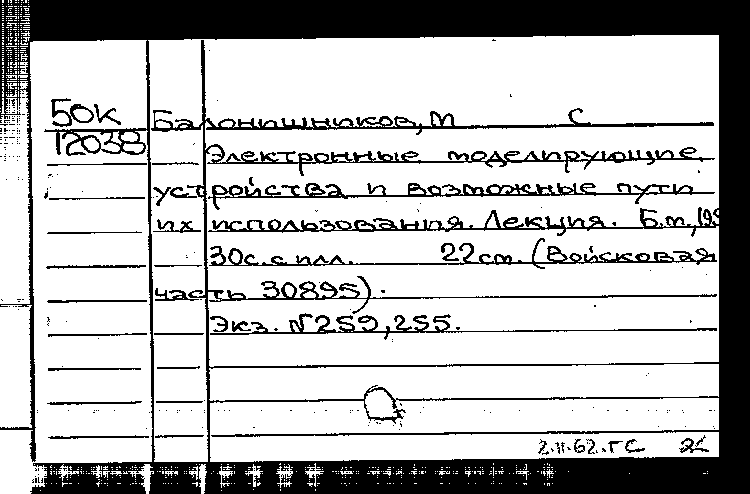 50К Балонишников, М С
12038 Электронные моделирующие
устройства и возможные пути
их использования. Лекция. Б.м.,
30с. с илл. 22 см. (Войсковая
часть 30895).
Экз. №259, 255.
2.II.62.ГС